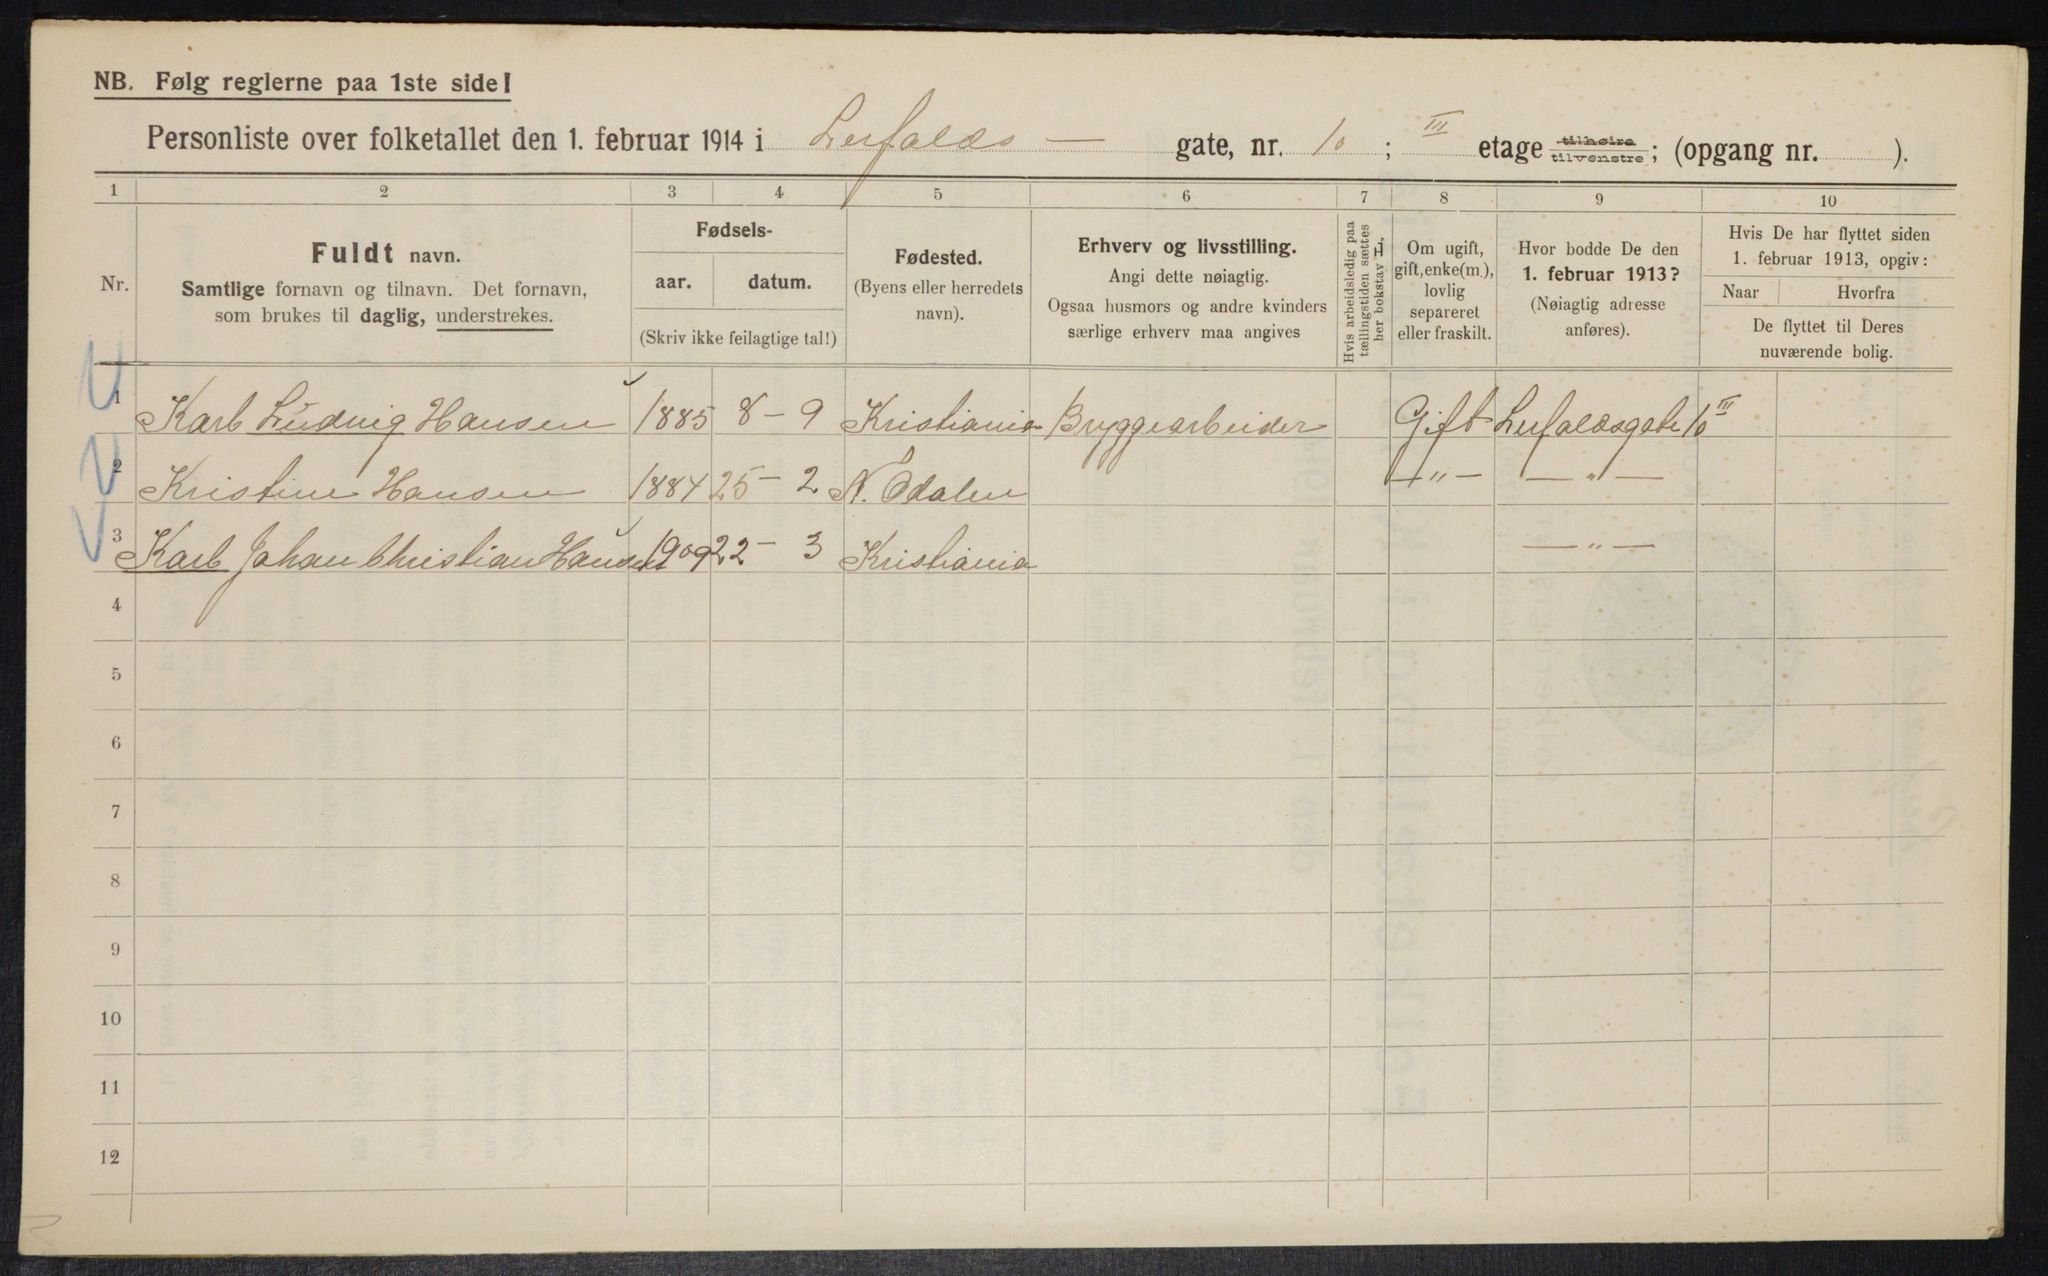 NB. Følg reglerne paa 1ste side!
Personliste over folketallet den 1. februar 1914 i Lerfalds — gate, nr. 10 ; III etage tilhøire tilvenstre ; (opgang nr. ).
1 2 3 4 5 6 7 8 9 10
Nr.
Fuldt navn.
Samtlige fornavn og tilnavn. Det fornavn,
som brukes til daglig, understrekes.
Fødsels-
aar. datum.
(Skriv ikke feilagtige tal!)
Fødested.
(Byens eller herredets
navn).
Erhverv og livsstilling.
Angi dette nøiagtig.
Ogsaa husmors og andre kvinders
særlige erhverv maa angives
Hvis arbeidsledig paa
tællingstiden sættes
her bokstav L.
Om ugift,
gift, enke(m.),
lovlig
separeret
eller fraskilt.
Hvor bodde De den
1. februar 1913?
(Nøiagtig adresse
anføres).
Hvis De har flyttet siden
1. februar 1913, opgiv:
Naar Hvorfra
De flyttet til Deres
nuværende bolig.
1 Karl Ludvig Hansen 1885 8 – 9 Kristiania Bryggearbeider Gift Lerfaldsgate 10 III
2 Kristine Hansen 1884 25 – 2 N. Odalen — „ — — „ —
3 Karl Johan Christian Hansen 1909 22 – 3 Kristiania — „ —
4
5
6
7
8
9
10
11
12